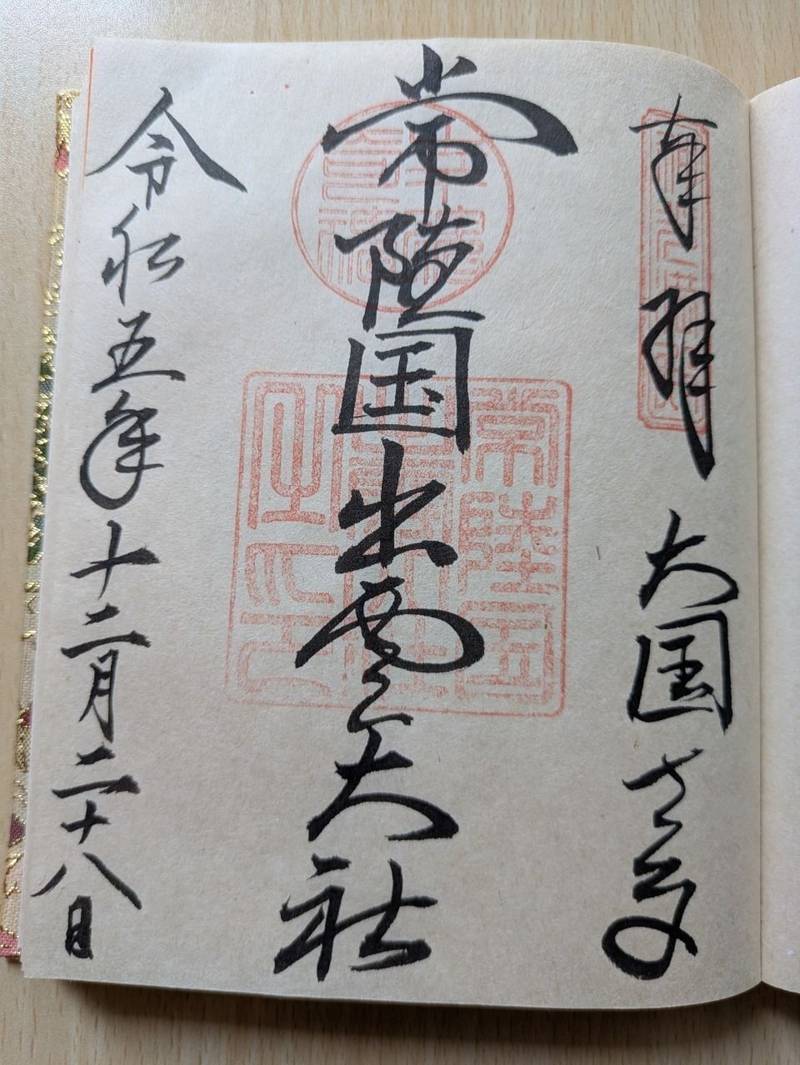 奉拝 大国さま
常陸国出雲大社
令和五年十二月二十八日
常陸国
出雲大社